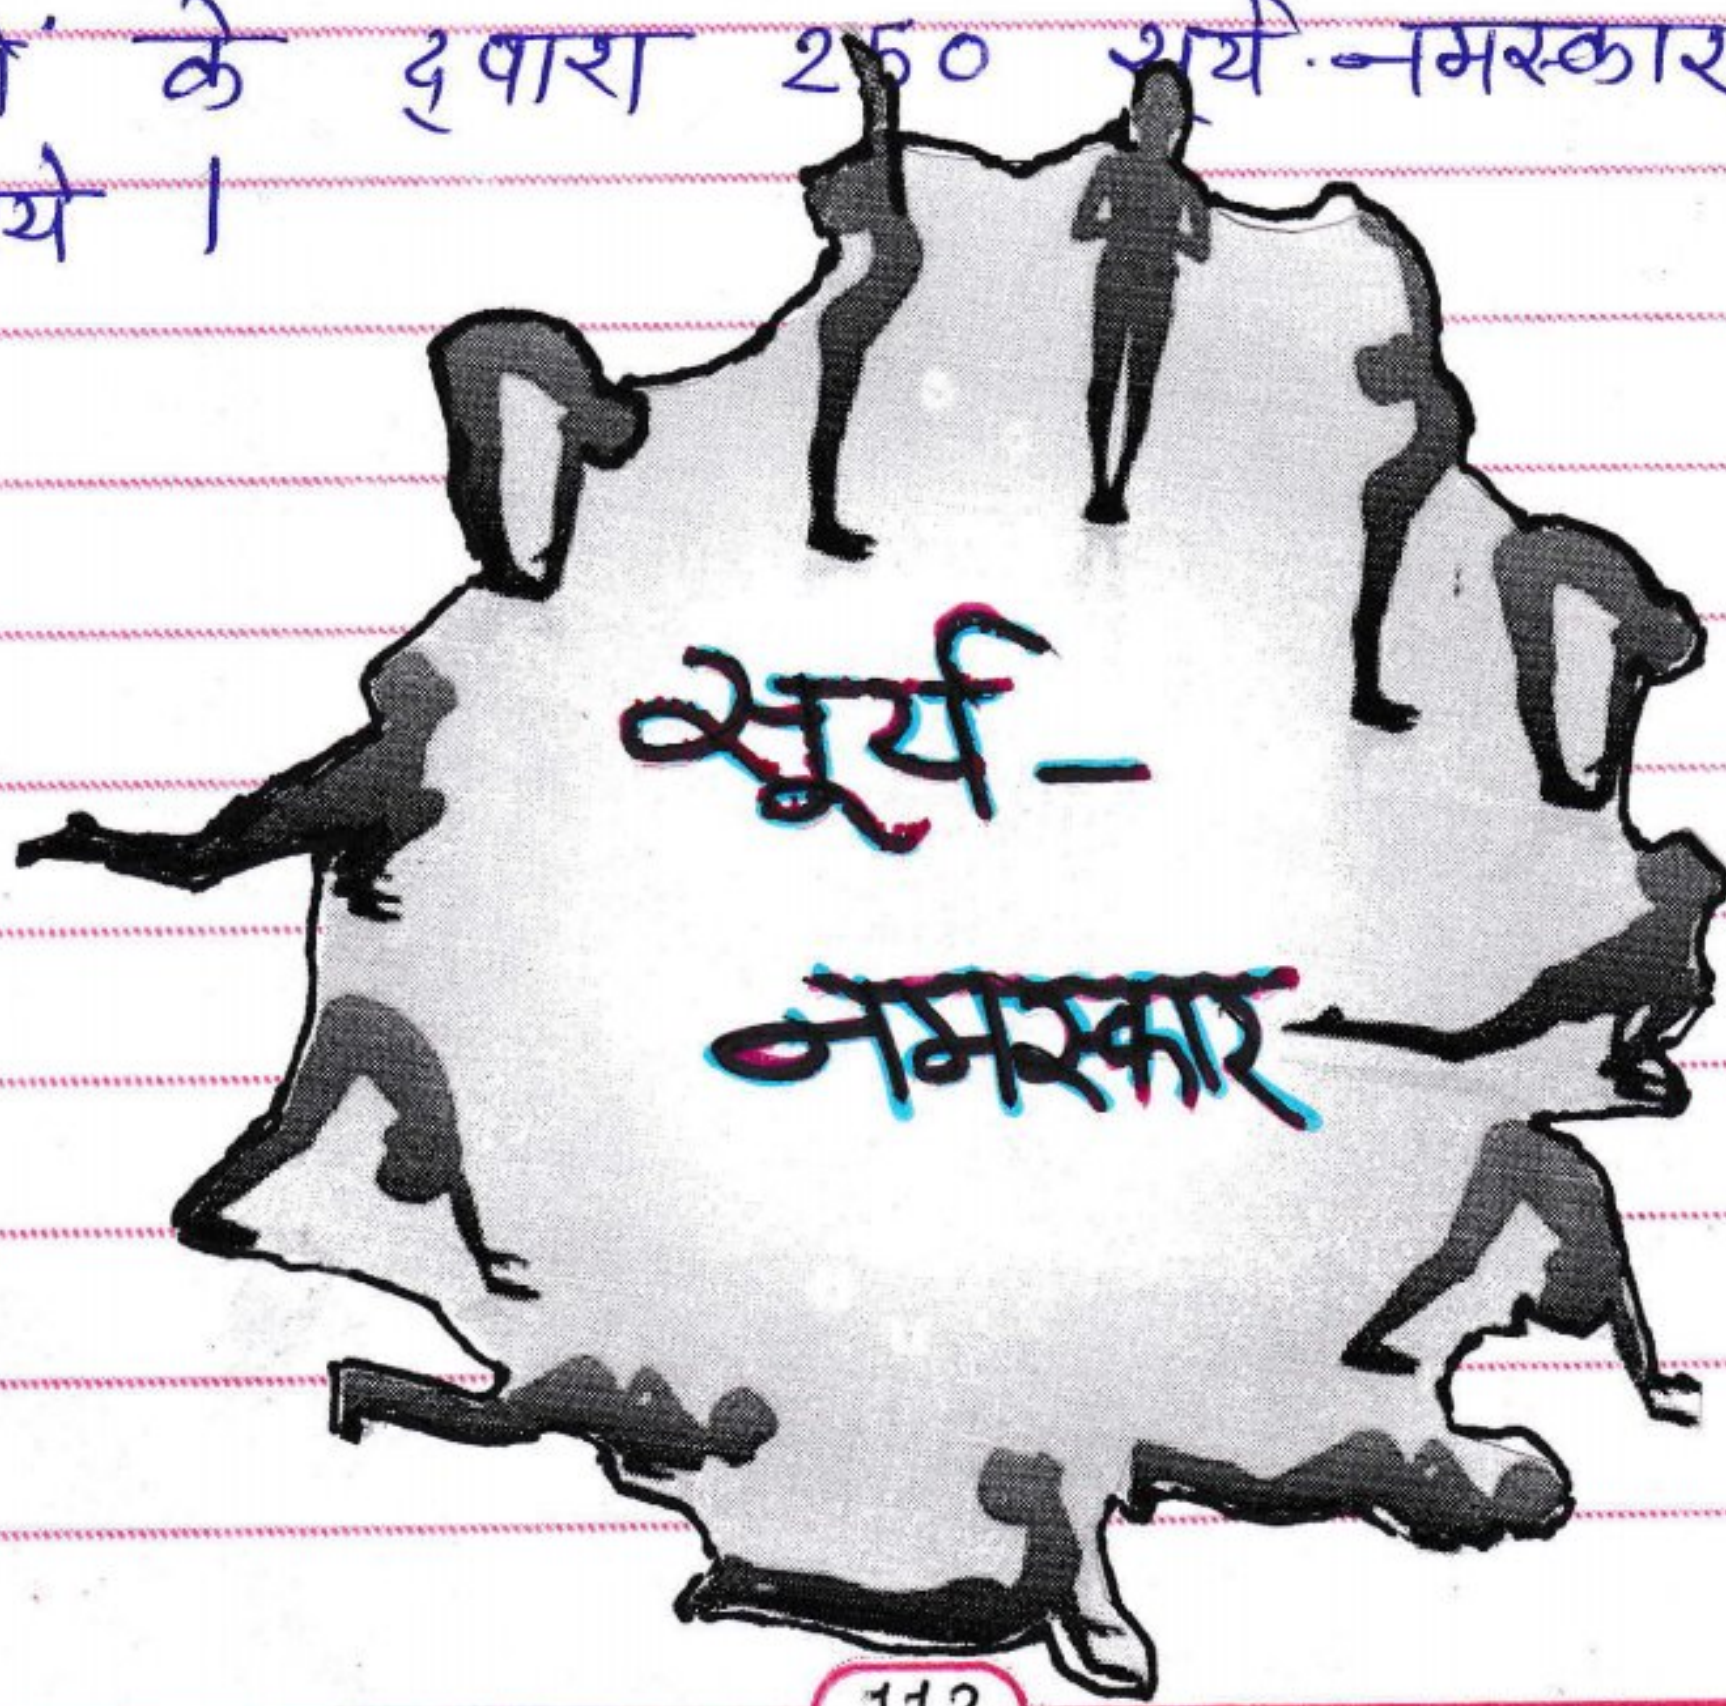 के द्वारा 250 सूर्य-नमस्कार
ये ।
सूर्य -
नमस्कार